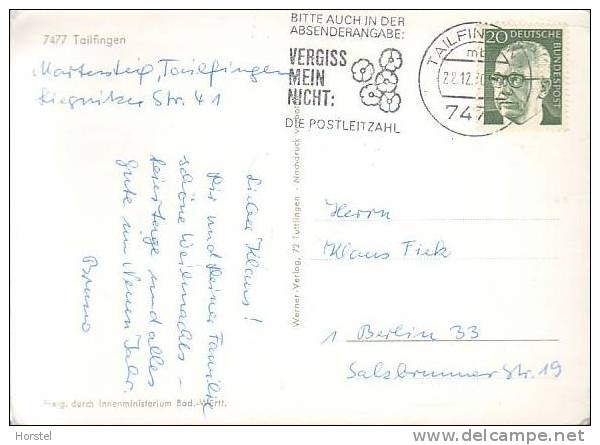 7477 Tailfingen
Martersteig, Tailfingen
Liegnitzer Str. 41
BITTE AUCH IN DER
ABSENDERANGABE:
VERGISS
MEIN
NICHT:
DIE POSTLEITZAHL
TAILFIN
22.12.
747
20 DEUTSCHE
BUNDESPOST
Lieber Klaus!
Dir und Deiner Familie
schöne Weihnachts-
feiertage und alles
Gute im Neuen Jahr.
Bruno
Werner-Verlag, 72 Tuttlingen - Nachdruck verboten
Herrn
Klaus Fick
1 Berlin 33
Salzbrunner Str. 19
Freig. durch Innenministerium Bad.-Württ.
Horstel
delcampe.net